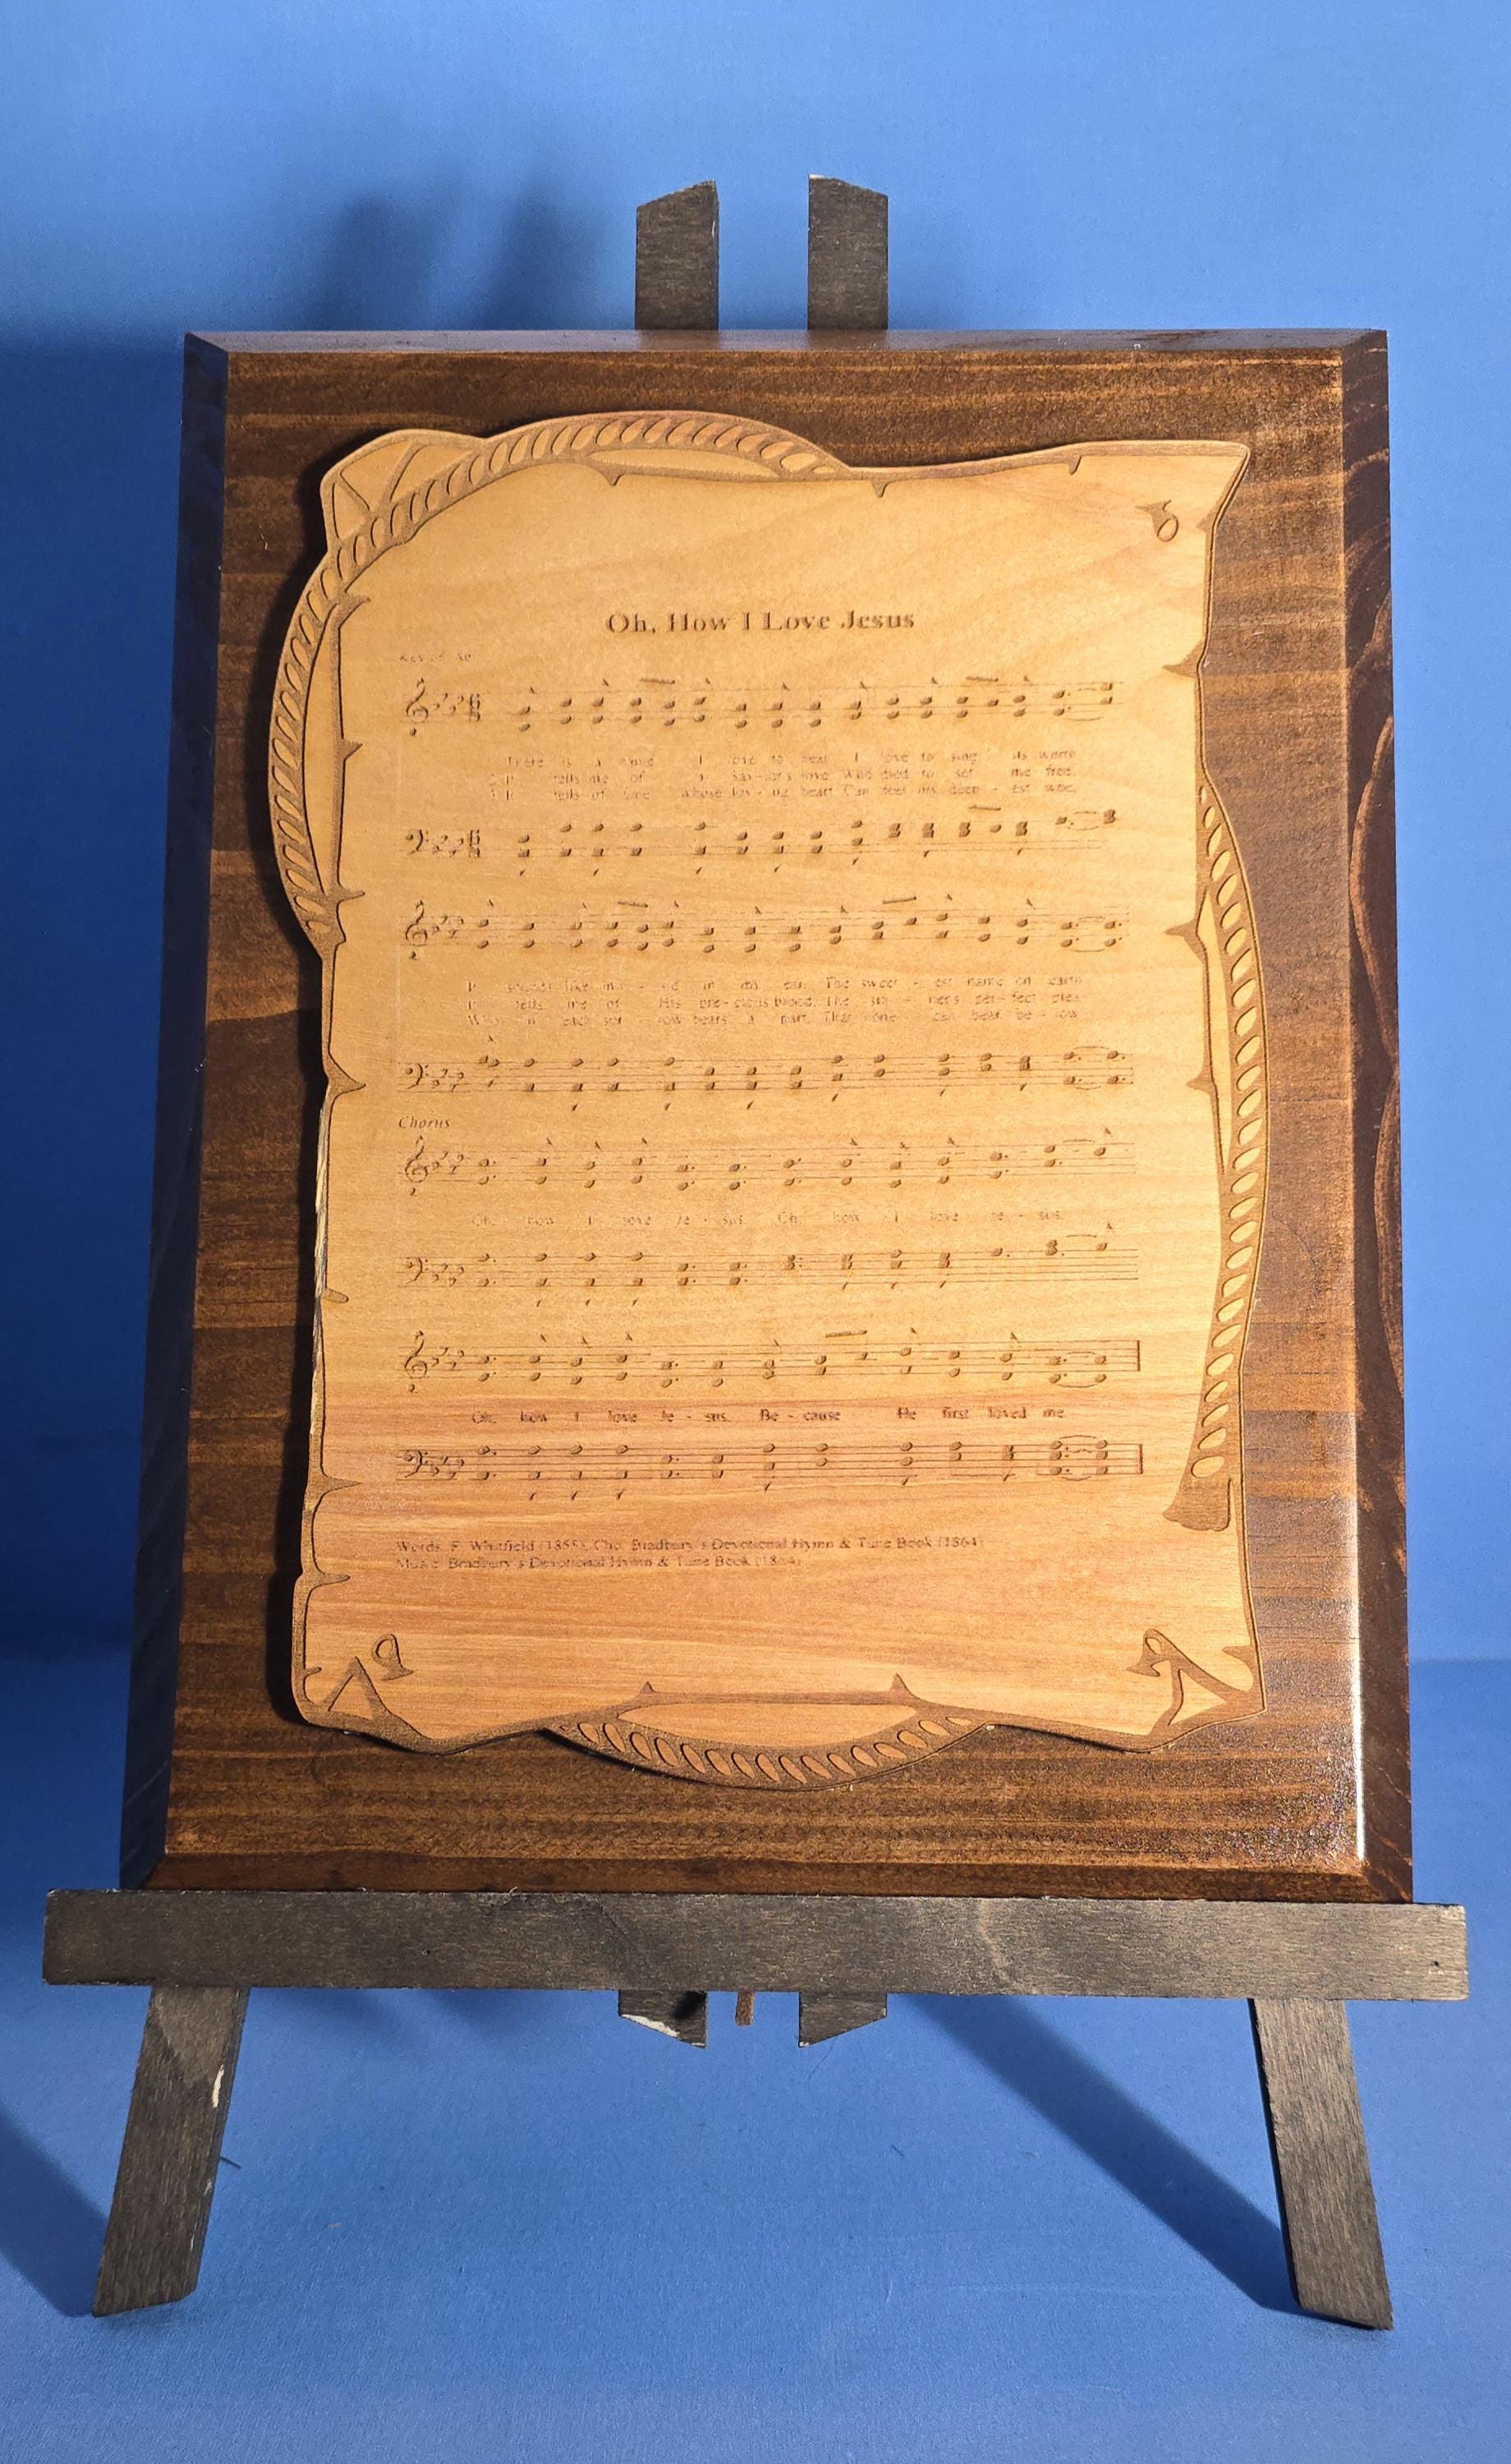 Oh, How I Love Jesus
Key of Ab
There is a name I love to hear, I love to sing its worth
2. It tells me of a Sav-ior's love, Who died to set me free,
3. It tells of One whose lov-ing heart Can feel my deep-est woe,
It sounds like mu-sic in my ear, The sweet-est name on earth
It tells me of His pre-cious blood, The sin-ner's per-fect plea
Who in each sor-row bears a part, That none can bear be-low
Chorus
Oh, how I love Je-sus, Oh, how I love Je-sus,
Oh, how I love Je-sus, Be-cause He first loved me.
Words: F. Whitfield (1855); Cho. Bradbury's Devotional Hymn & Tune Book (1864)
Music: Bradbury's Devotional Hymn & Tune Book (1864)